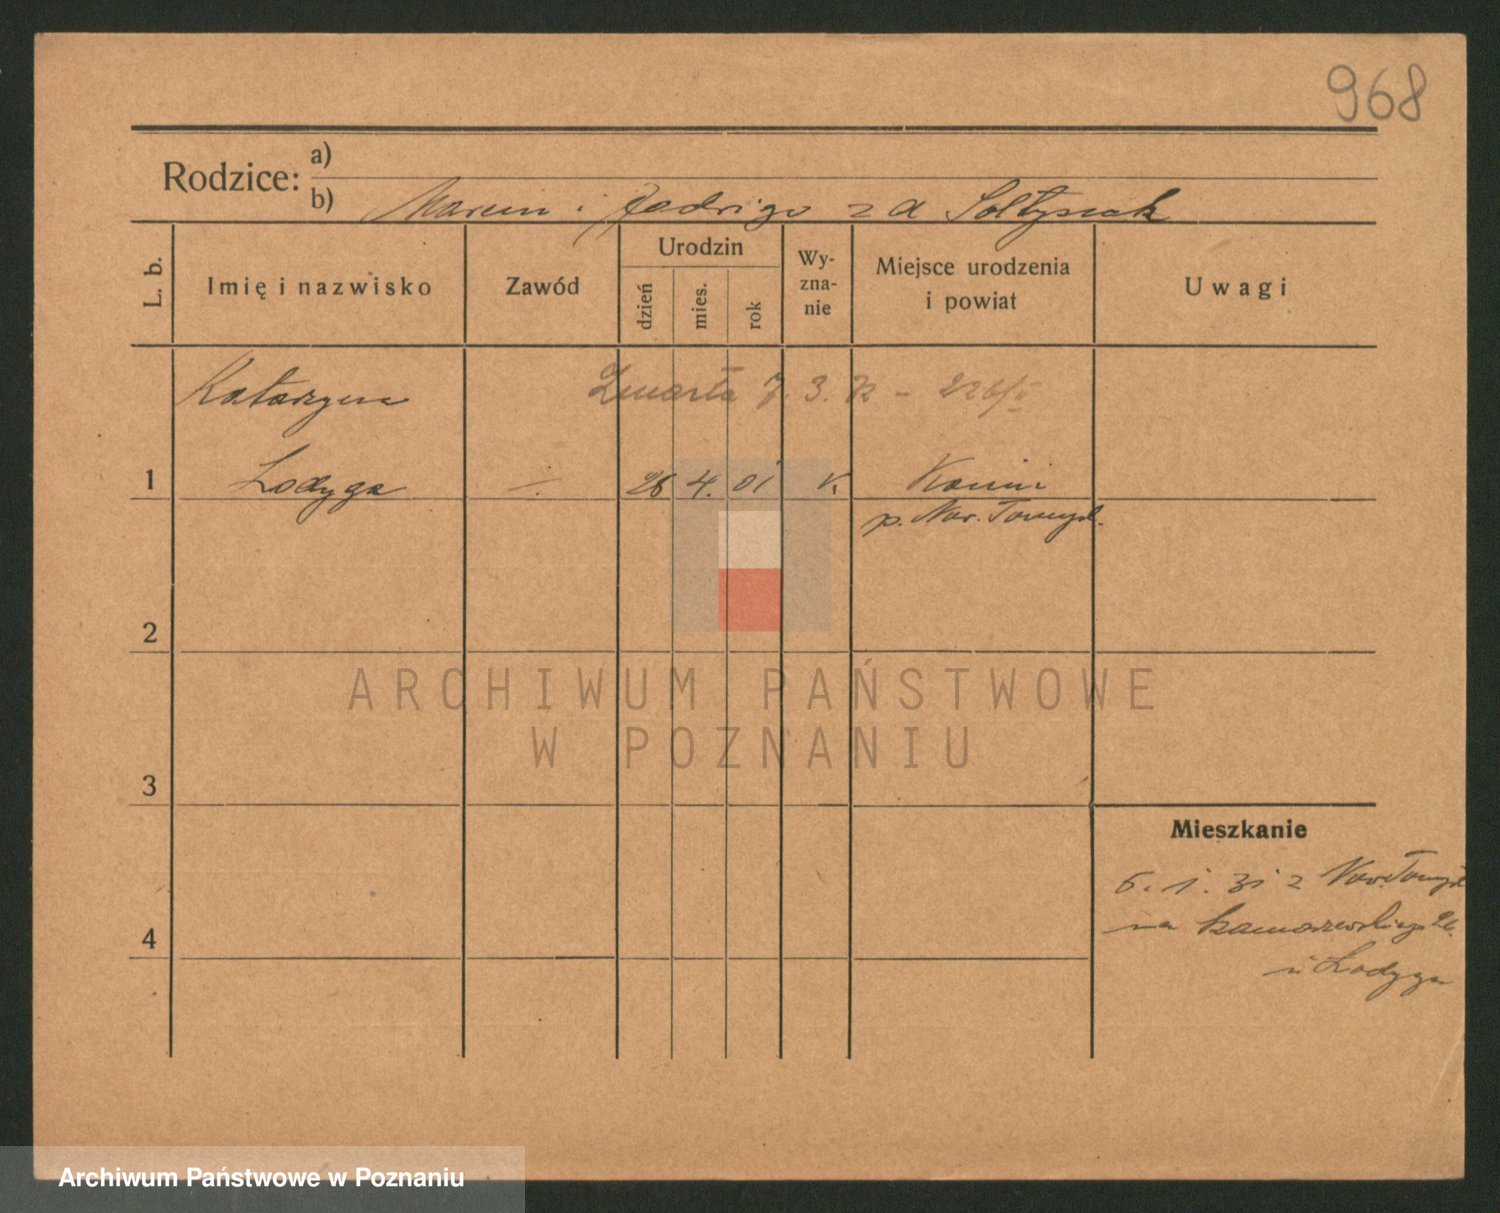 968
Rodzice: a)
b) Marcin i Jadwiga z d Sołtysiak
L. b.
Imię i nazwisko
Zawód
Urodzin
dzień
mies.
rok
Wy-
zna-
nie
Miejsce urodzenia
i powiat
Uwagi
Katarzyna
Zmarła 7. 3. 72 -
1 Łodyga 26 4. 01 k.
p. Now. Tomyśl.
2
ARCHIWUM PAŃSTWOWE
W POZNANIU
3
Mieszkanie
5. 1. 31 z Now. Tomyśl
na 26.
u Łodyga
4
Archiwum Państwowe w Poznaniu